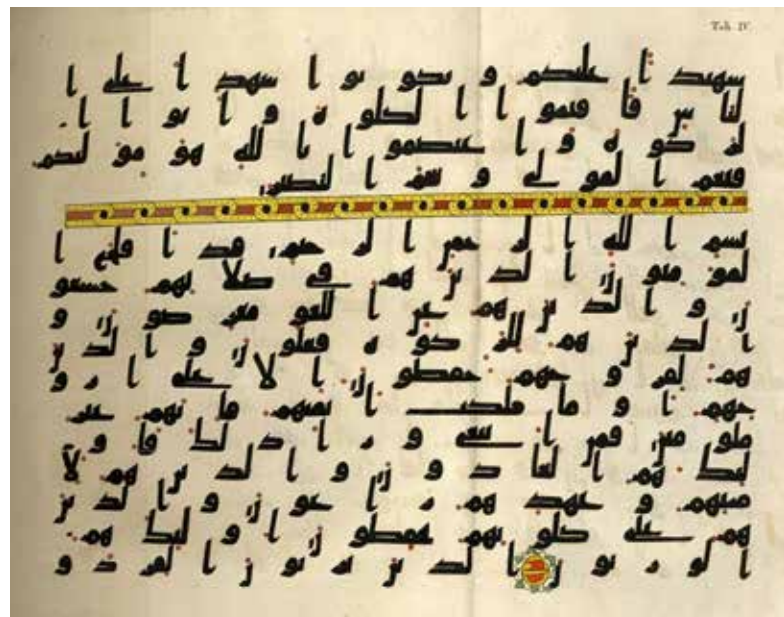 Tab. IV.
شهيدا عليكم و تكونوا شهدا على ا
لناس فاقيموا الصلوه و اتوا ا
لزكوه و اعتصموا بالله هو موليكم
فنعم المولى و نعم النصير
بسم الله الرحمن الرحيم قد افلح ا
لمومنون الذين هم في صلاتهم خشعو
ن و الذين هم عن اللغو معرضون و
الذين هم للزكوه فعلون و الذين
هم لفروجهم حفظون الا على ازو
جهم او ما ملكت ايمنهم فانهم غير
ملومين فمن ابتغى ورا ذلك فاو
ليك هم العادون و الذين هم لا
منتهم و عهدهم راعون و الذين
هم على صلوتهم يحفظون اوليك هم
الورثون الذين يرثون الفردو